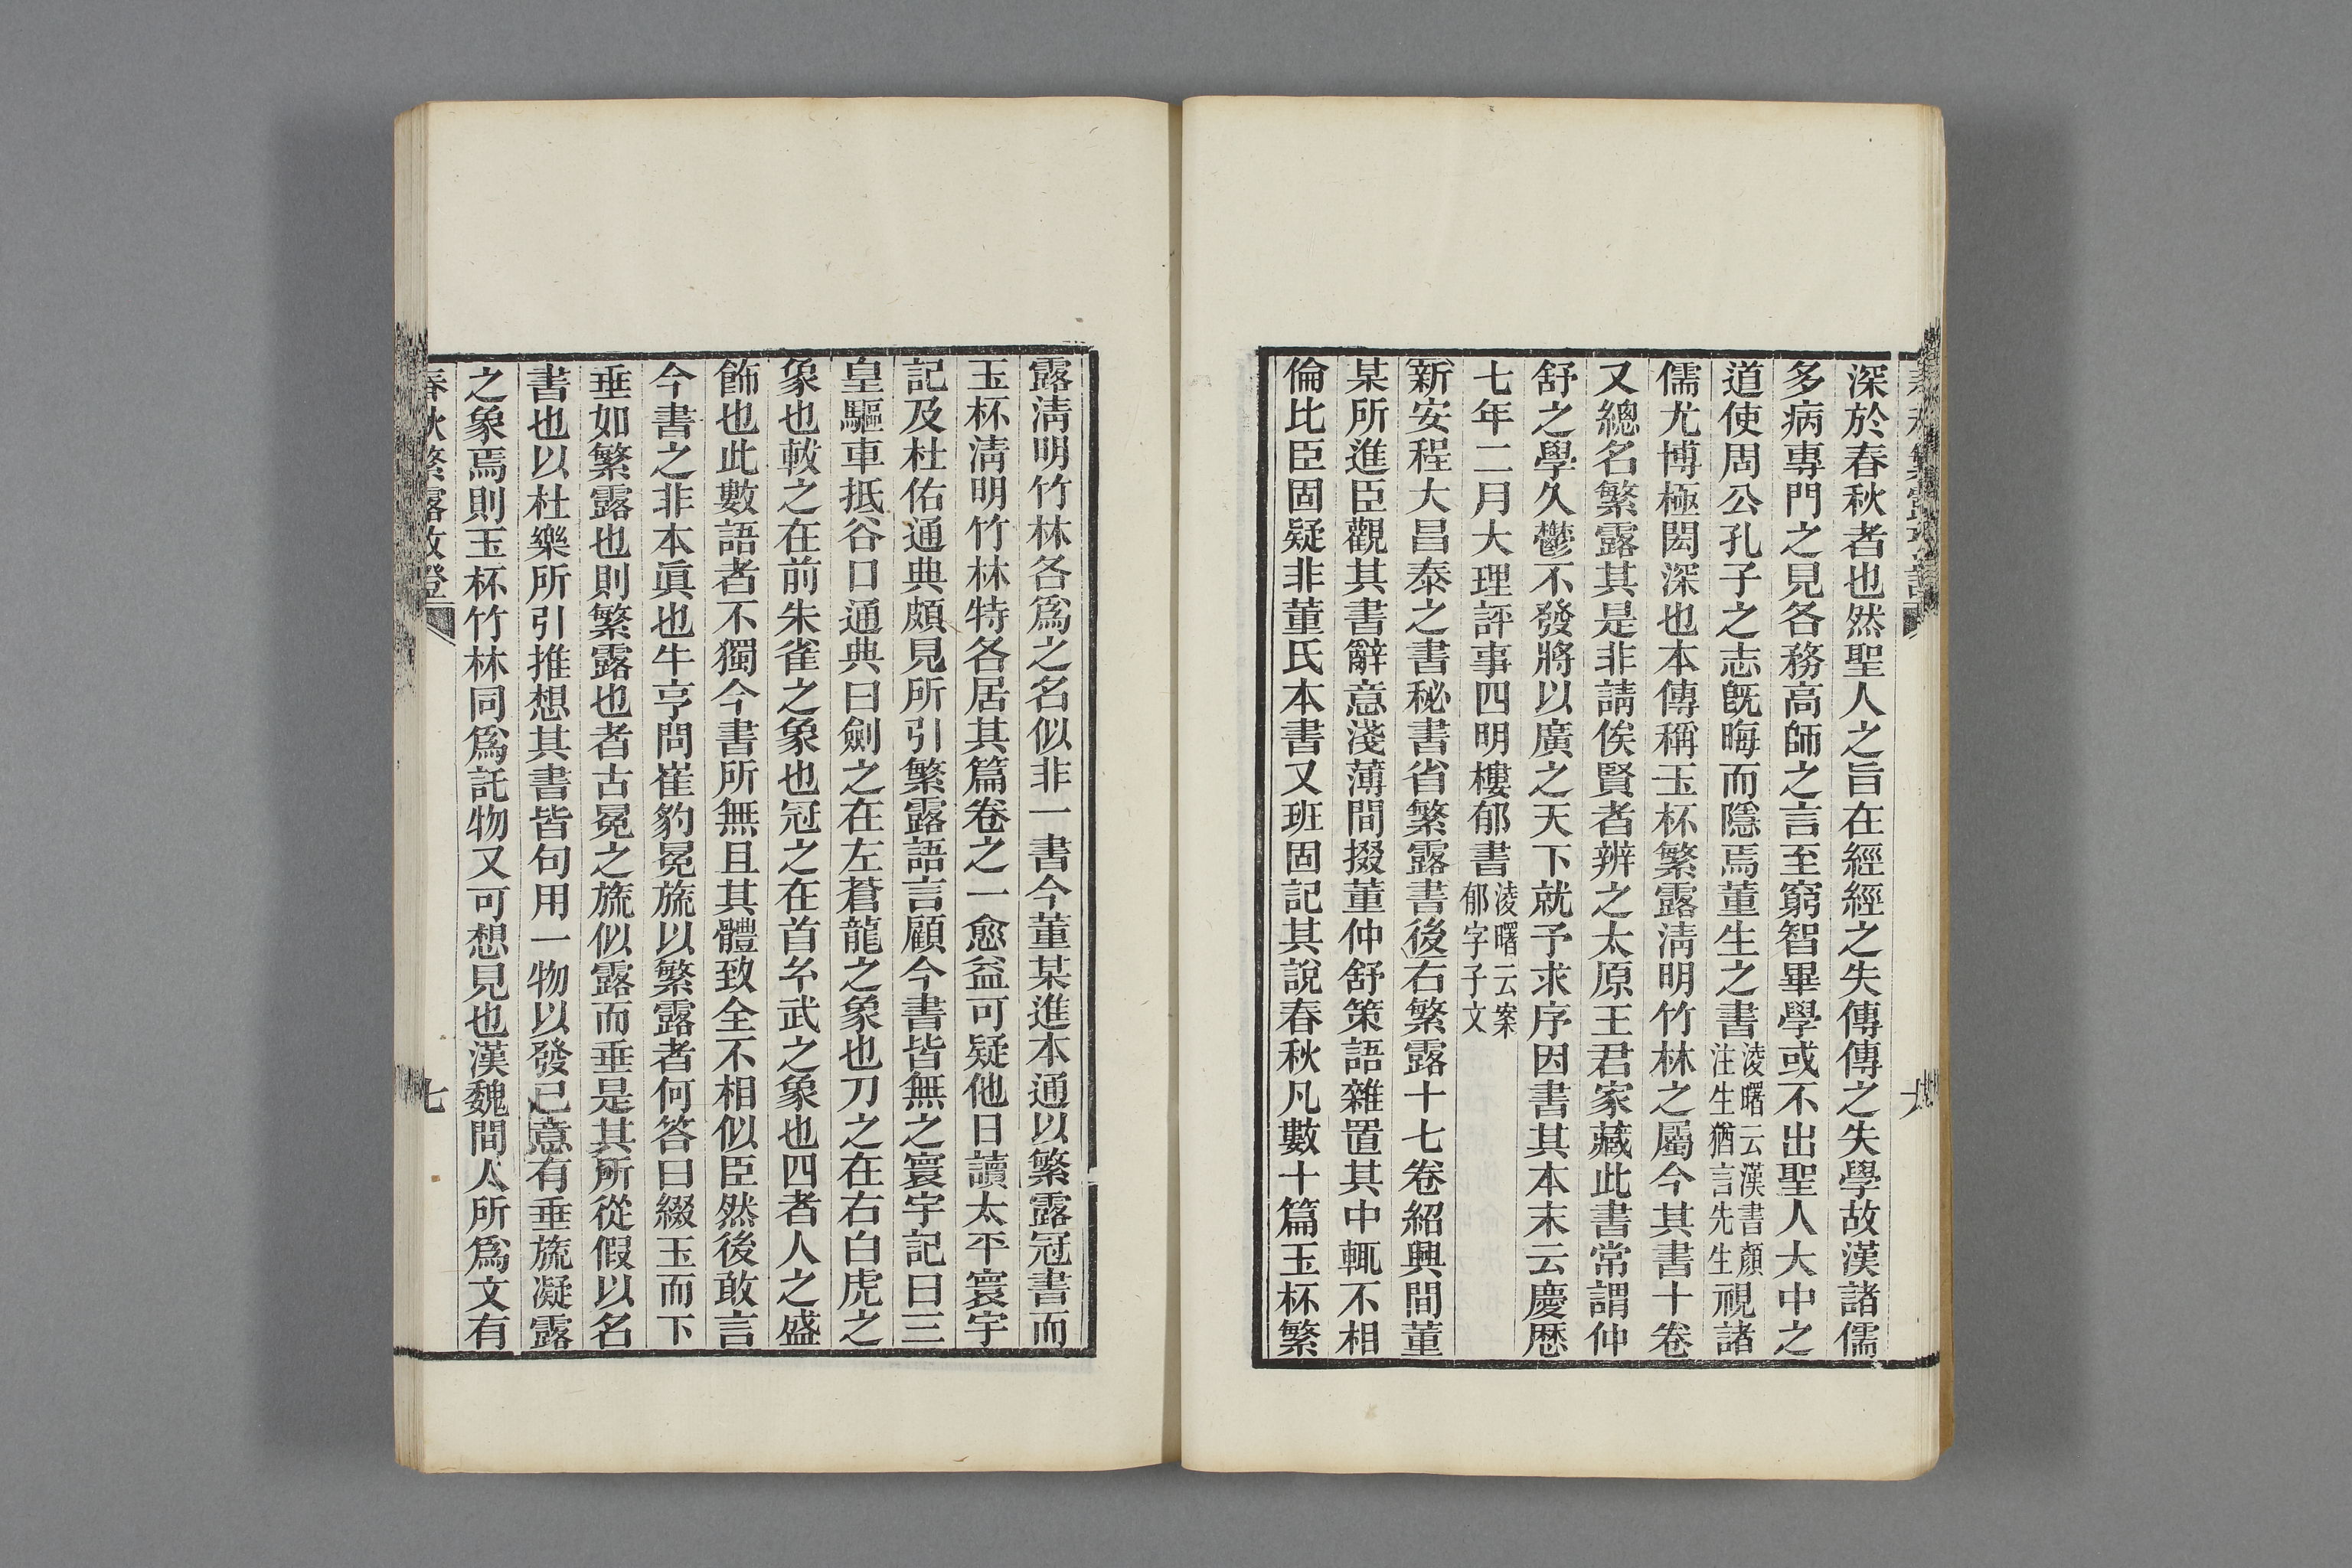 深於春秋者也然聖人之旨在經經之失傳傳之失學故漢諸儒
多病專門之見各務高師之言至窮智畢學或不出聖人大中之
道使周公孔子之志旣晦而隱焉董生之書淩曙云漢書顏注生猶言先生視諸
儒尤博極閎深也本傳稱玉杯繁露淸明竹林之屬今其書十卷
又總名繁露其是非請俟賢者辨之太原王君家藏此書常謂仲
舒之學久鬱不發將以廣之天下就予求序因書其本末云慶厯
七年二月大理評事四明樓郁書淩曙云案郁字子文
新安程大昌泰之書秘書省繁露書後右繁露十七卷紹興間董
某所進臣觀其書辭意淺薄間掇董仲舒策語雜置其中輒不相
倫比臣固疑非董氏本書又班固記其說春秋凡數十篇玉杯繁
露淸明竹林各爲之名似非一書今董某進本通以繁露冠書而
玉杯淸明竹林特各居其篇卷之一愈益可疑他日讀太平寰宇
記及杜佑通典頗見所引繁露語言顧今書皆無之寰宇記曰三
皇驅車抵谷口通典曰劍之在左蒼龍之象也刀之在右白虎之
象也韍之在前朱雀之象也冠之在首玄武之象也四者人之盛
飾也此數語者不獨今書所無且其體致全不相似臣然後敢言
今書之非本眞也牛亨問崔豹冕旒以繁露者何答曰綴玉而下
垂如繁露也則繁露也者古冕之旒似露而垂是其所從假以名
書也以杜樂所引推想其書皆句用一物以發己意有垂旒凝露
之象焉則玉杯竹林同爲託物又可想見也漢魏間人所爲文有
春秋繁露攷證
七